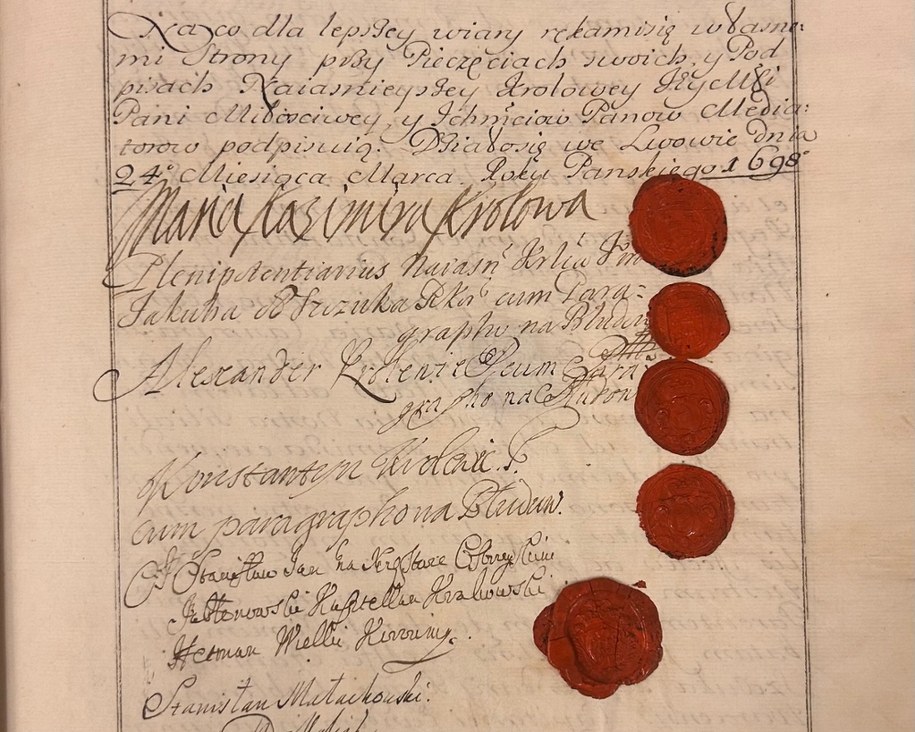 Na co dla lepszey wiary rękamisię własne:
mi Strony przy Pieczęciach swoich, y Pod
pisach Naiasnieyszey Krolowey Jey Mśći
Pani Miłościwey, y Ichmćiow Panow Media:
torow podpisuią. Działosię we Lwowie dnia
24° Miesiąca Marca. Roku Panskiego 1698°
Maria Kazimira Krolowa
Plenipotentiarius Naiasń Krlca
Jakuba Szczuka cum Para-
grapho na Błudow
Alexander Krolewic cum Para
grapho na
Konstantyn Krolewic
cum paragrapho na Błudow.
Stanisław Jan na
Jabłonowski Kasztellan Krakowski
Hetman Wielki Koronny.
Stanisław Małachowski.